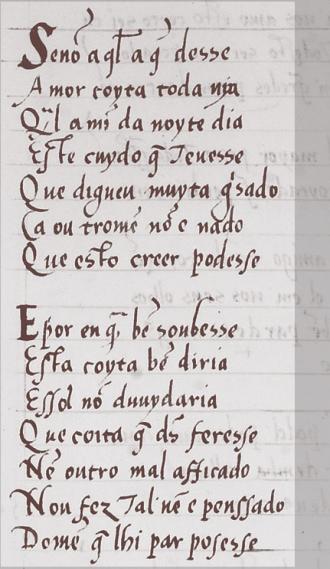 Senõ aql̃ a q̃ desse
Amor coyta toda nȷa
Qil a mĩ da noyte dia
Este cuydo q̃ Teuesse
Que digueu muyta g'sado
Ca ou trome nõ e nado
Que esto creer podesse
E por en q̃ bẽ soubesse
Esta coyta bẽ diria
Essol nõ duuydaria
Que coita q̃ ds̃ fezesse
Nẽ outro mal afficado
Non fez Tal nẽ e penssado
Domẽ q̃ lhi par posesse